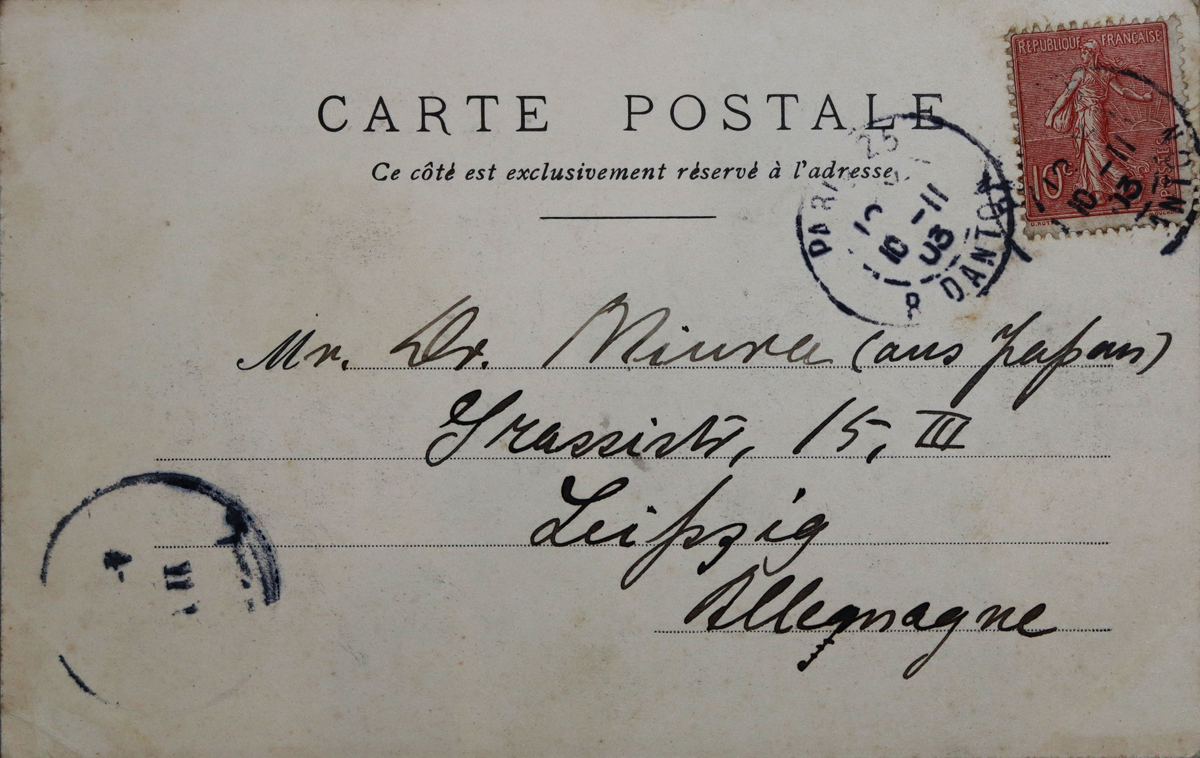 RÉPUBLIQUE FRANÇAISE
10
POSTES
CARTE POSTALE
Ce côté est exclusivement réservé à l'adresse
PARIS 25
10 -11
03
DANTON
10 -11
03
Mr. Dr. Miura (aus Japan)
Grassistr, 15, III
Leipzig
Allemagne